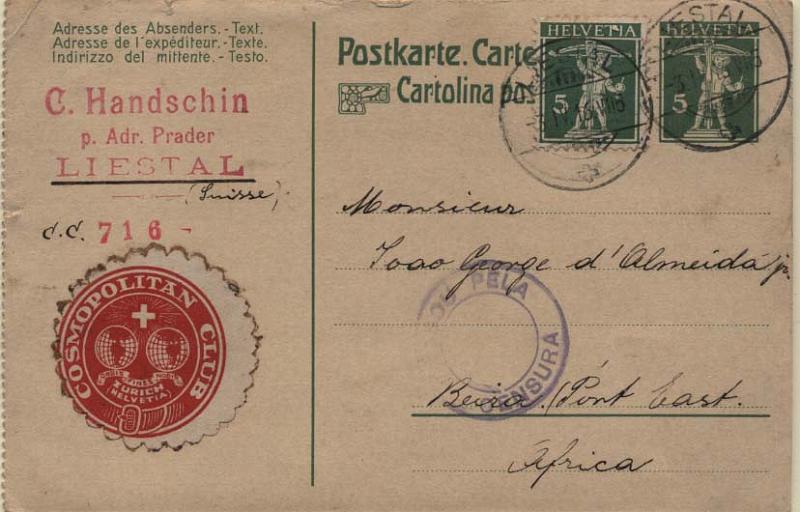 Adresse des Absenders.-Text.
Adresse de l'expéditeur.-Texte.
Indirizzo del mittente.-Testo.
C. Handschin
p. Adr. Prader
LIESTAL
(Suisse)
c.c. 716-
COSMOPOLITAN CLUB
ZÜRICH
(HELVETIA)
Postkarte. Carte
Cartolina pos
HELVETIA
5
HELVETIA
5
LIESTAL
Monsieur
Joao George d'Almeida jr.
PELA
CENSURA
Beira. (Port East.
Africa